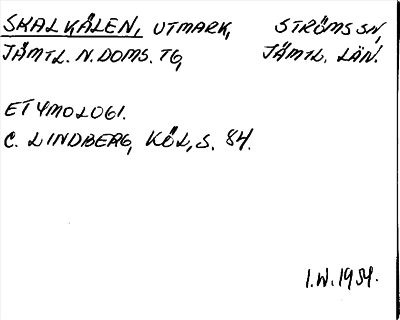 SKALKÅLEN, UTMARK, STRÖMS SN,
JÄMTL. N. DOMS. TG, JÄMTL. LÄN.
ETYMOLOGI.
C. LINDBERG, KÖL, S. 84.
I.W. 1984.